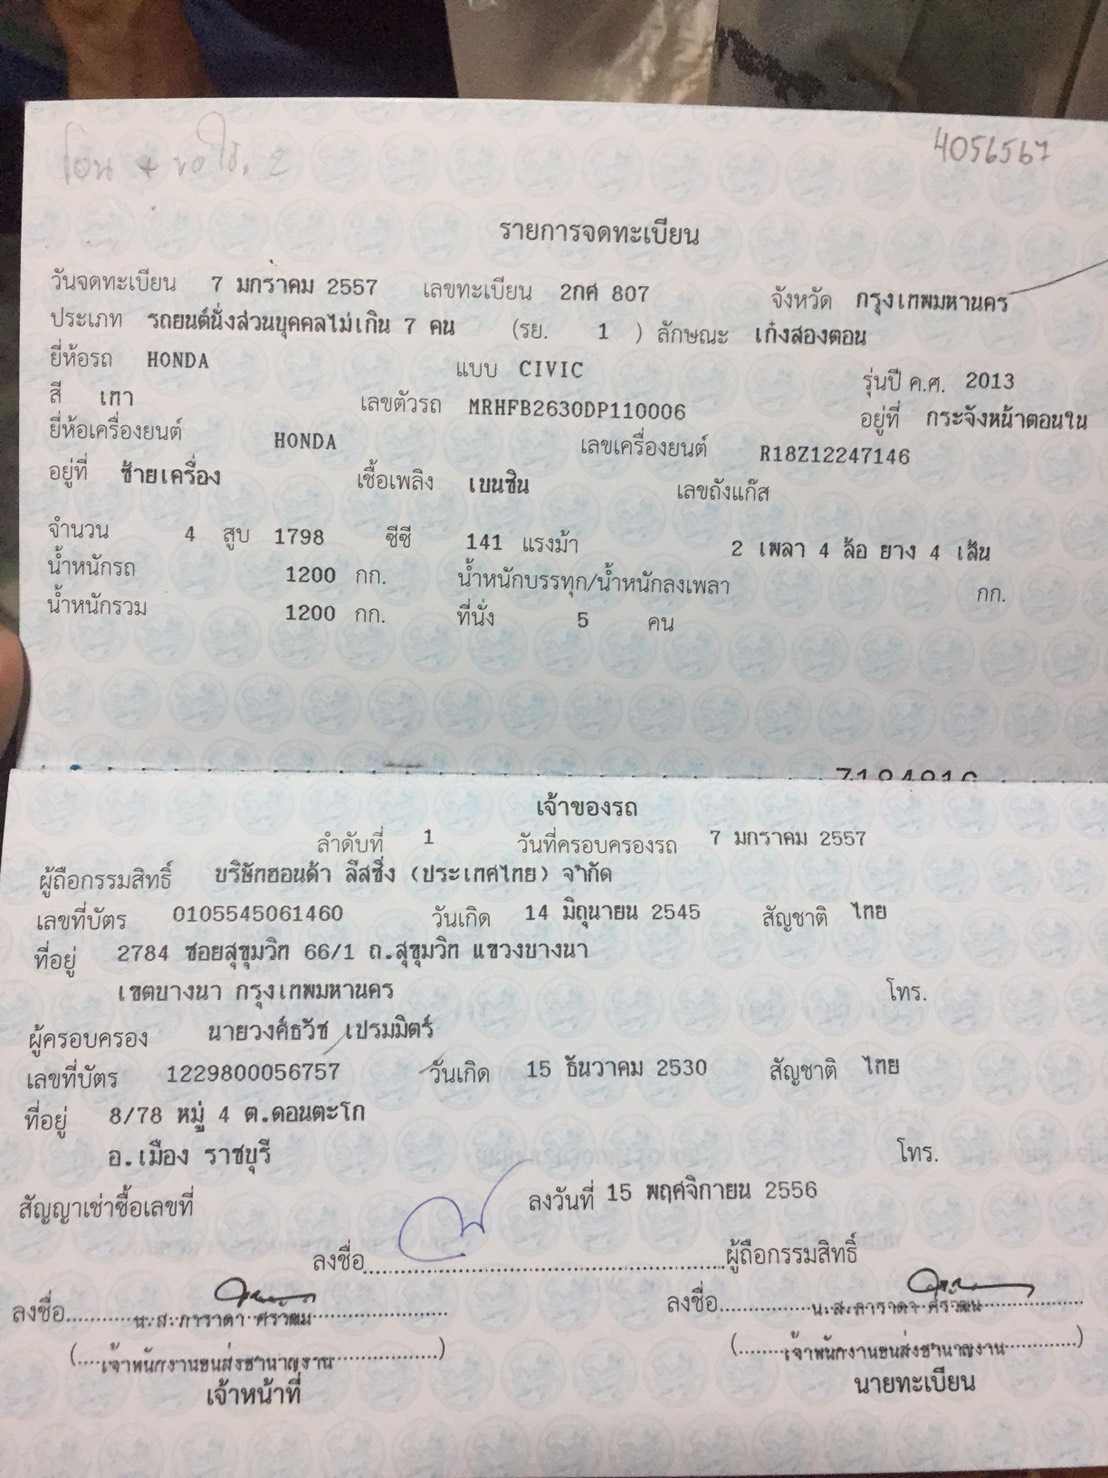 โอน + ขอใช้ 2
4056567
รายการจดทะเบียน
วันจดทะเบียน 7 มกราคม 2557 เลขทะเบียน 2กศ 807 จังหวัด กรุงเทพมหานคร
ประเภท รถยนต์นั่งส่วนบุคคลไม่เกิน 7 คน (รย. 1 ) ลักษณะ เก๋งสองตอน
ยี่ห้อรถ HONDA แบบ CIVIC รุ่นปี ค.ศ. 2013
สี เทา เลขตัวรถ MRHFB2630DP110006 อยู่ที่ กระจังหน้าตอนใน
ยี่ห้อเครื่องยนต์ HONDA เลขเครื่องยนต์ R18Z12247146
อยู่ที่ ซ้ายเครื่อง เชื้อเพลิง เบนซิน เลขถังแก๊ส
จำนวน 4 สูบ 1798 ซีซี 141 แรงม้า 2 เพลา 4 ล้อ ยาง 4 เส้น
น้ำหนักรถ 1200 กก. น้ำหนักบรรทุก/น้ำหนักลงเพลา กก.
น้ำหนักรวม 1200 กก. ที่นั่ง 5 คน
เจ้าของรถ
ลำดับที่ 1 วันที่ครอบครองรถ 7 มกราคม 2557
ผู้ถือกรรมสิทธิ์ บริษัทฮอนด้า ลีสซิ่ง (ประเทศไทย) จำกัด
เลขที่บัตร 0105545061460 วันเกิด 14 มิถุนายน 2545 สัญชาติ ไทย
ที่อยู่ 2784 ซอยสุขุมวิท 66/1 ถ.สุขุมวิท แขวงบางนา
เขตบางนา กรุงเทพมหานคร โทร.
ผู้ครอบครอง นายวงศ์ธวัช เปรมมิตร์
เลขที่บัตร 1229800056757 วันเกิด 15 ธันวาคม 2530 สัญชาติ ไทย
ที่อยู่ 8/78 หมู่ 4 ต.ดอนตะโก
อ.เมือง ราชบุรี โทร.
สัญญาเช่าซื้อเลขที่ ลงวันที่ 15 พฤศจิกายน 2556
ลงชื่อ ผู้ถือกรรมสิทธิ์
ลงชื่อ น.ส.ภาราดา ลงชื่อ น.ส.ภาราดา
(เจ้าพนักงานขนส่งชำนาญงาน) (เจ้าพนักงานขนส่งชำนาญงาน)
เจ้าหน้าที่ นายทะเบียน